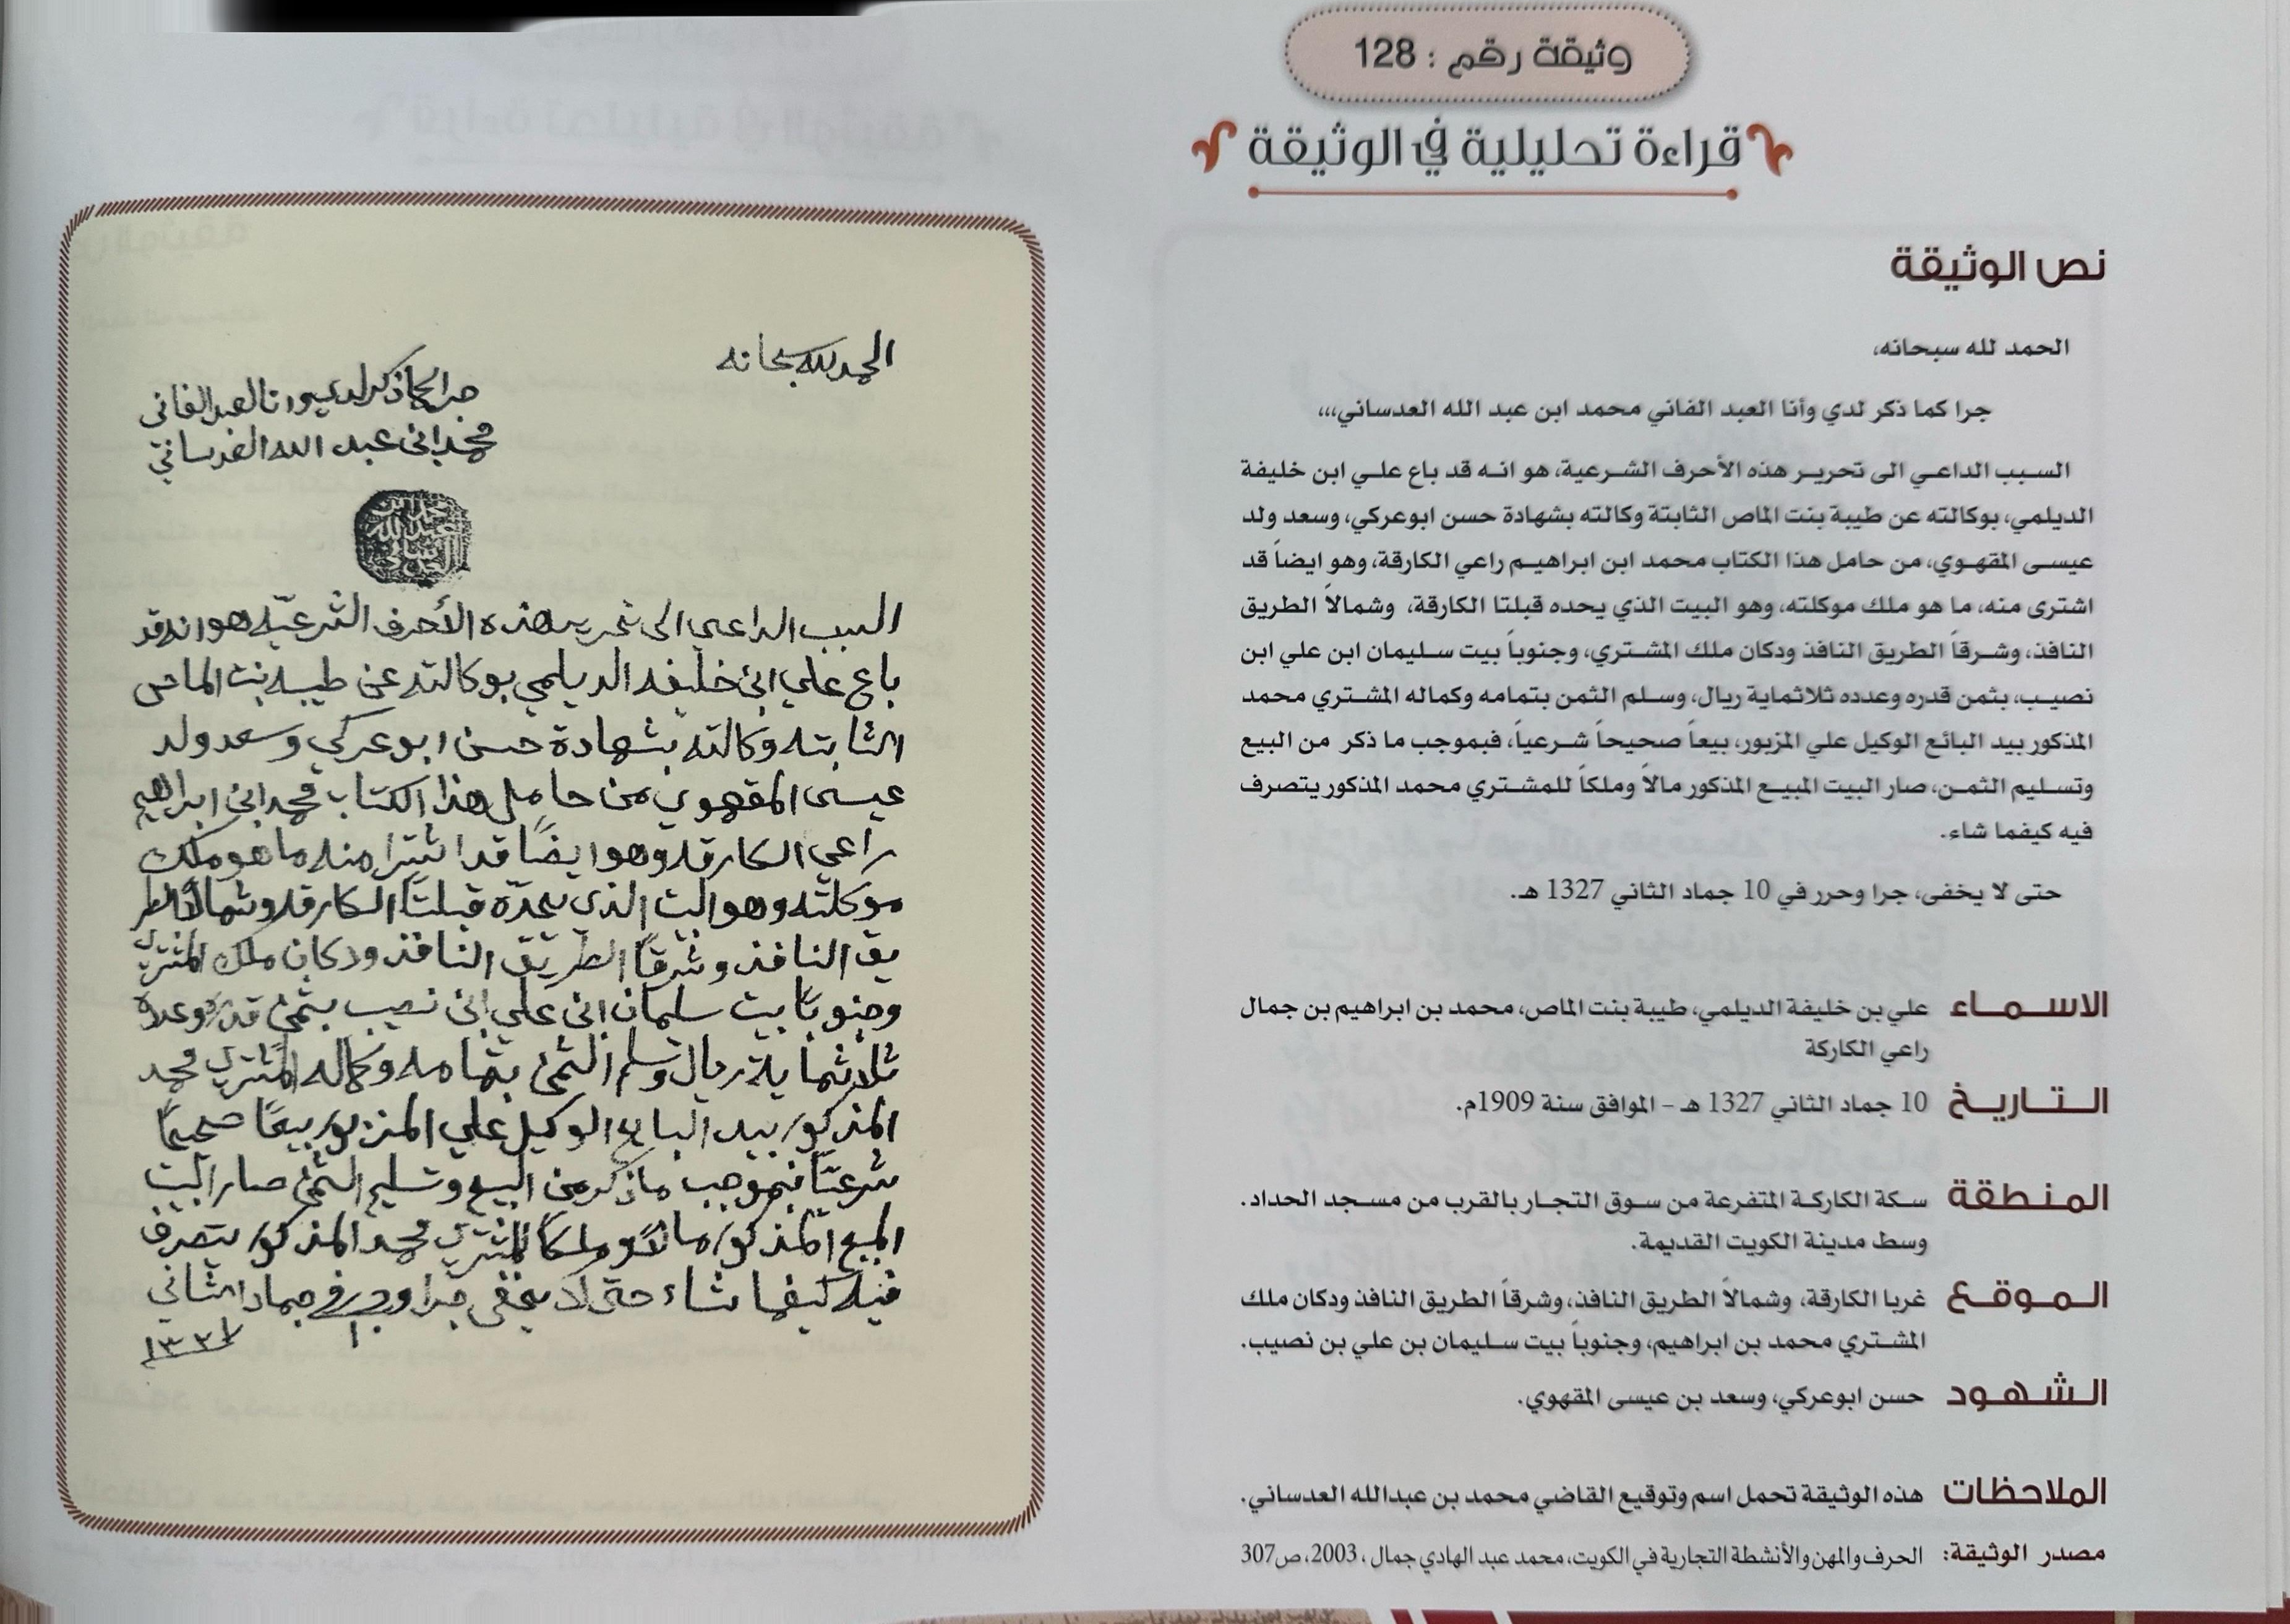 وثيقة رقم : 128
قراءة تحليلية في الوثيقة
نص الوثيقة
الحمد لله سبحانه،
جرا كما ذكر لدي وأنا العبد الفاني محمد ابن عبد الله العدساني،،،
السبب الداعي الى تحرير هذه الأحرف الشرعية، هو انه قد باع علي ابن خليفة
الديلمي، بوكالته عن طيبة بنت الماص الثابتة وكالته بشهادة حسن ابوعركي، وسعد ولد
عيسى المقهوي، من حامل هذا الكتاب محمد ابن ابراهيم راعي الكارقة، وهو ايضاً قد
اشترى منه، ما هو ملك موكلته، وهو البيت الذي يحده قبلتا الكارقة، وشمالاً الطريق
النافذ، وشرقاً الطريق النافذ ودكان ملك المشتري، وجنوباً بيت سليمان ابن علي ابن
نصيب، بثمن قدره وعدده ثلاثماية ريال، وسلم الثمن بتمامه وكماله المشتري محمد
المذكور بيد البائع الوكيل علي المزبور، بيعاً صحيحاً شرعياً، فبموجب ما ذكر من البيع
وتسليم الثمن، صار البيت المبيع المذكور مالاً وملكاً للمشتري محمد المذكور يتصرف
فيه كيفما شاء.
حتى لا يخفى، جرا وحرر في 10 جماد الثاني 1327 هـ.
الاسماء علي بن خليفة الديلمي، طيبة بنت الماص، محمد بن ابراهيم بن جمال
راعي الكاركة
التاريخ 10 جماد الثاني 1327 هـ - الموافق سنة 1909م.
المنطقة سكة الكاركة المتفرعة من سوق التجار بالقرب من مسجد الحداد.
وسط مدينة الكويت القديمة.
الموقع غربا الكارقة، وشمالاً الطريق النافذ، وشرقاً الطريق النافذ ودكان ملك
المشتري محمد بن ابراهيم، وجنوباً بيت سليمان بن علي بن نصيب.
الشهود حسن ابوعركي، وسعد بن عيسى المقهوي.
الملاحظات هذه الوثيقة تحمل اسم وتوقيع القاضي محمد بن عبدالله العدساني.
مصدر الوثيقة: الحرف والمهن والأنشطة التجارية في الكويت، محمد عبد الهادي جمال، 2003، ص307
الحمد لله سبحانه
جرا كما ذكر لدي وانا العبد الفاني
محمد ابن عبد الله العدساني
السبب الداعي الى تحرير هذه الأحرف الشرعيّه هو انه قد
باع علي ابن خليفه الديلمي بوكالته عن طيبه بنت الماص
الثابته وكالته بشهادة حسن ابو عركي وسعد ولد
عيسى المقهوي من حامل هذا الكتاب محمد ابن ابراهيم
راعي الكارقه وهو ايضًا قد اشترا منه ما هو ملك
موكلته وهو البيت الذي يحدّه قبلتًا الكارقه وشمالًا الطر
يق النافذ وشرقًا الطريق النافذ ودكان ملك المشتري
وجنوبًا بيت سليمان ابن علي ابن نصيب بثمن قدره وعدده
ثلاثماية ريال وسلم الثمن بتمامه وكماله المشتري محمد
المذكور بيد البايع الوكيل علي المزبور بيعًا صحيحًا
شرعيًا فبموجب ما ذكر من البيع وتسليم الثمن صار البيت
المبيع المذكور مالًا وملكًا للمشتري محمد المذكور يتصرف
فيه كيفما شاء حتى لا يخفى جرا وحرر في ١٠ جماد الثاني